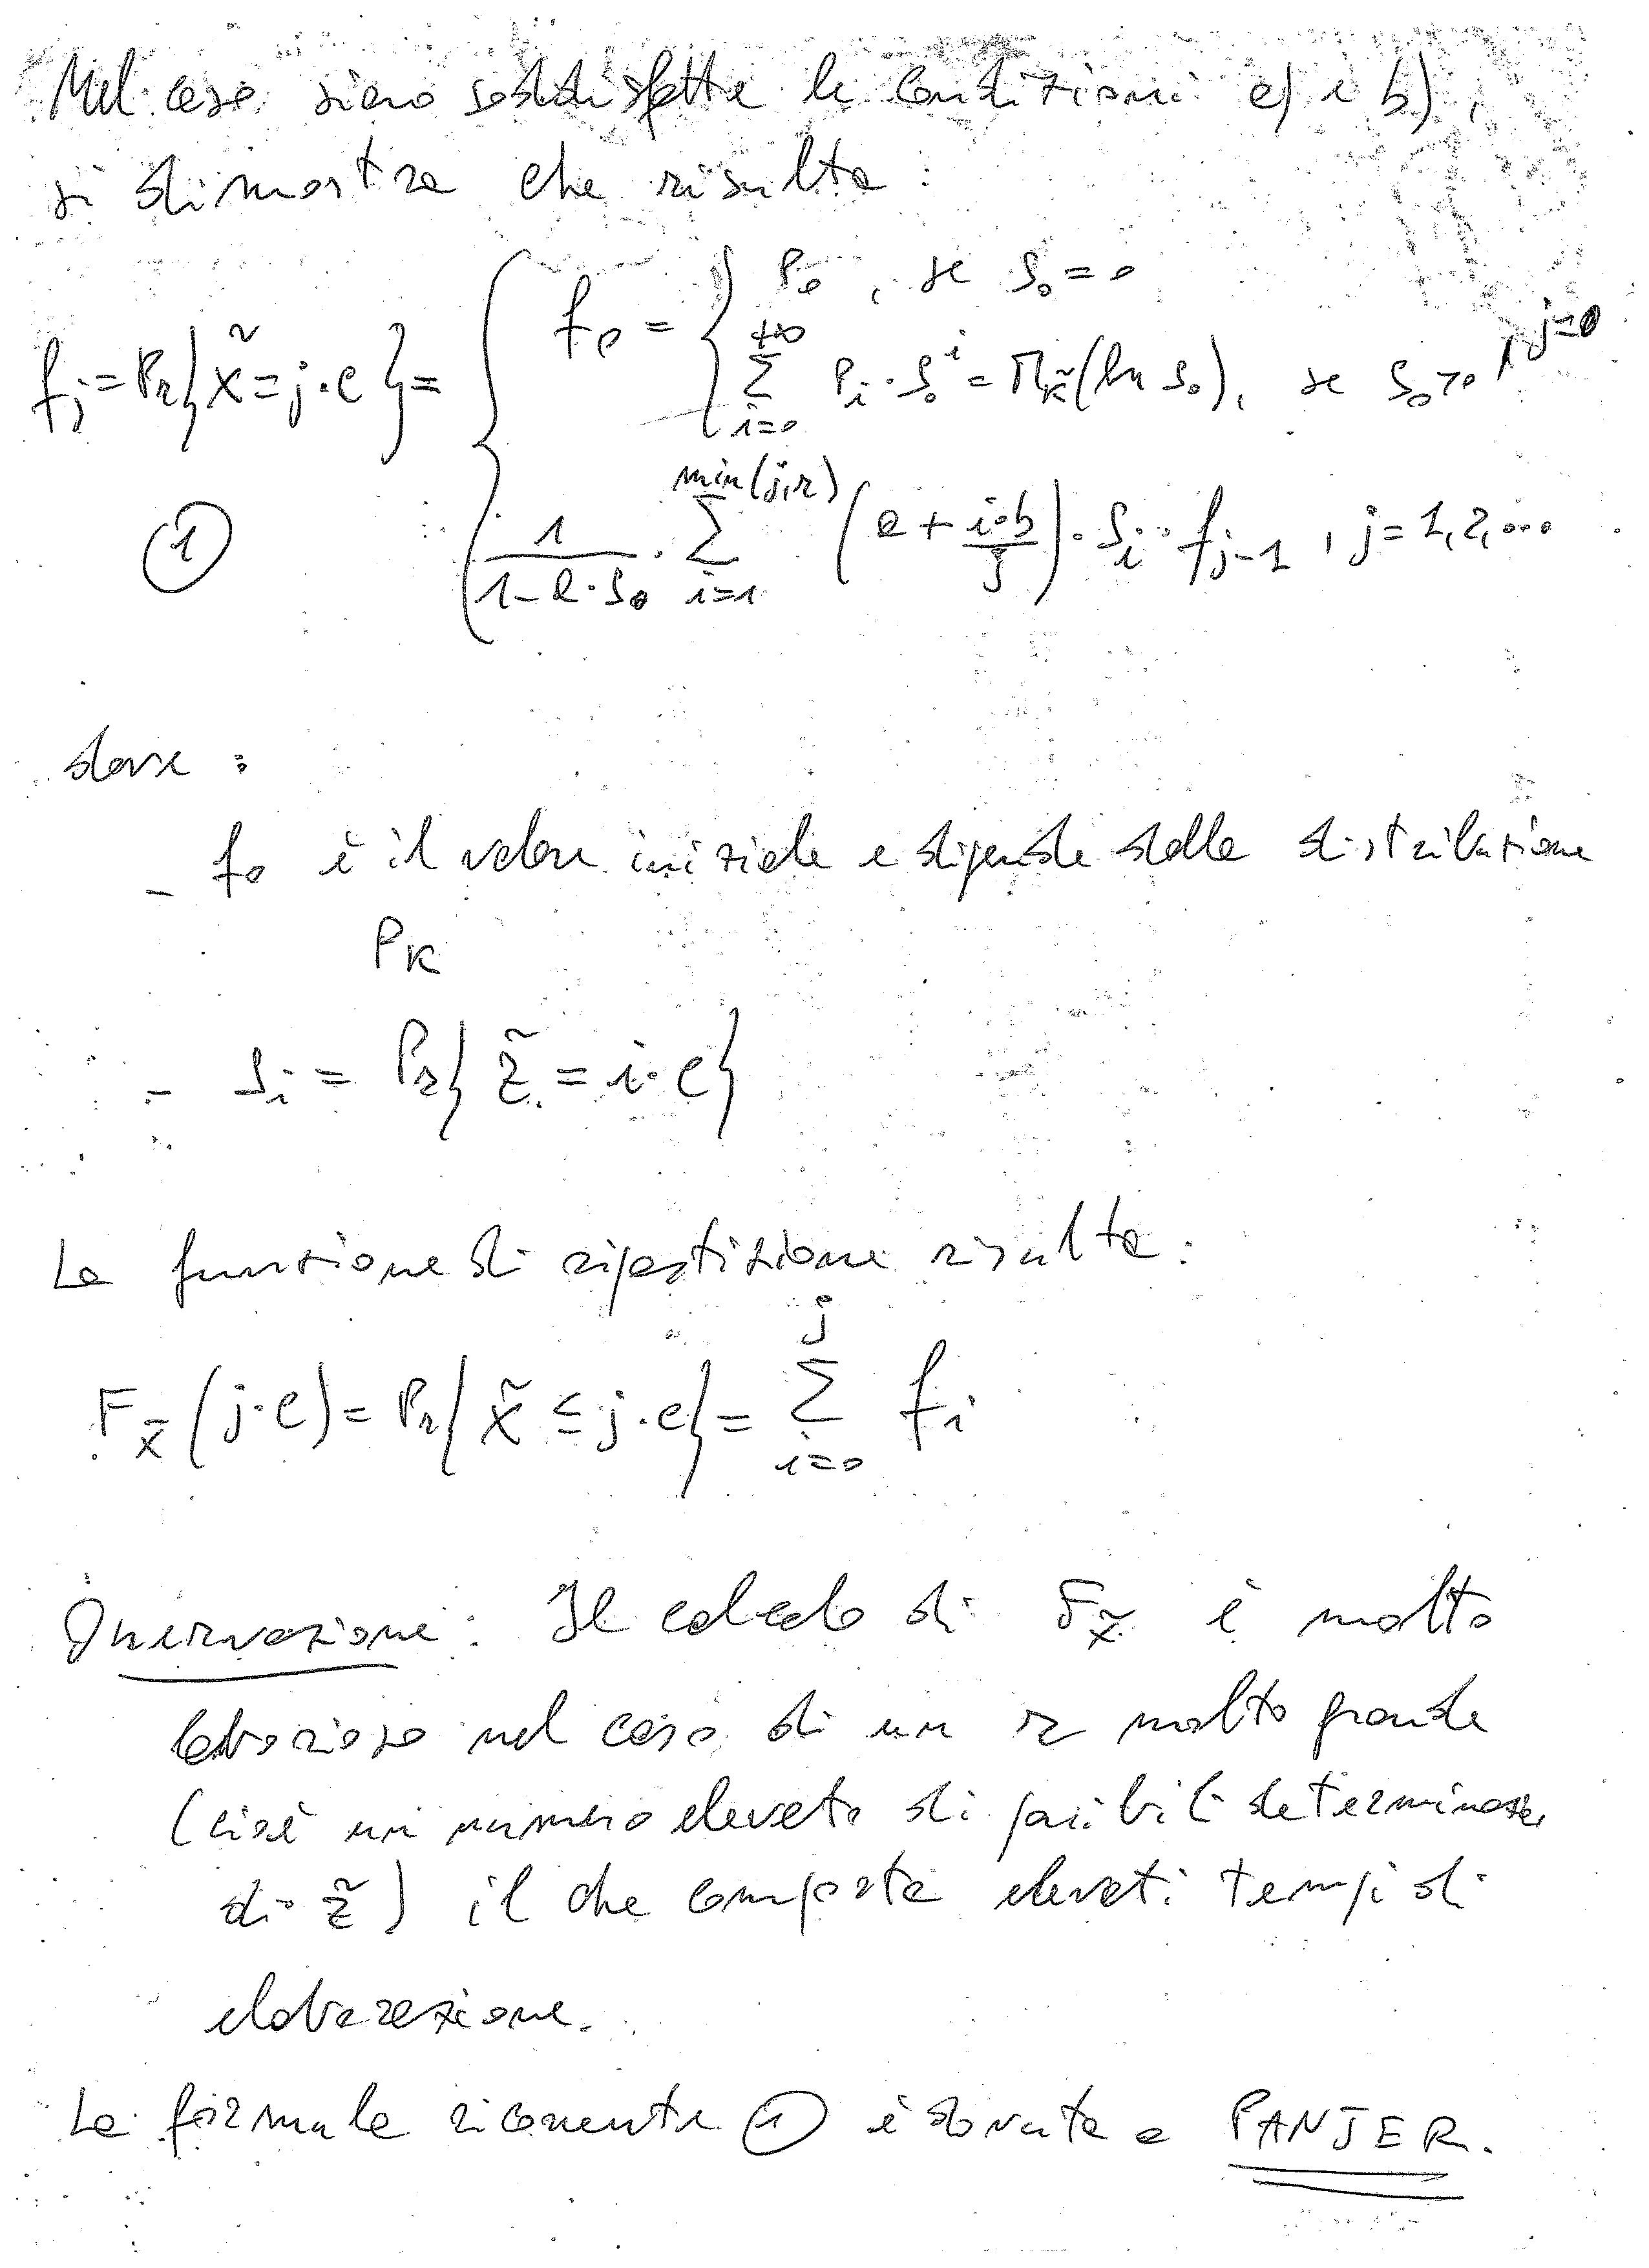 Nel caso siano soddisfatte le condizioni a) e b),
si dimostra che risulta:
f_j = Pr{x̃ = j·c} = { f_0 = { p_0, se s_0 = 0
Σ_{i=0}^{+∞} p_i · s_0^i = M_k̃(ln s_0), se s_0 > 0, j=0
① 1/(1-a·s_0) · Σ_{i=1}^{min(j,r)} (a + i·b/j) · s_i · f_{j-1}, j = 1, 2, ...
dove:
- f_0 è il valore iniziale e dipende dalla distribuzione
P_K
- s_i = Pr{z̃ = i·c}
La funzione di ripartizione risulta:
F_x̃(j·c) = Pr{x̃ ≤ j·c} = Σ_{i=0}^{j} f_i
Osservazione: Il calcolo di F_x̃ è molto
laborioso nel caso di un r molto grande
(cioè un numero elevato di possibili determinazioni
di z̃) il che comporta elevati tempi di
elaborazione.
La formula ricorrente ① è dovuta a PANJER.